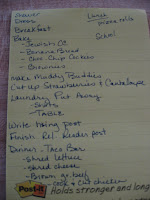 Shower
Dress
Breakfast
Bake
- Jewish CC
- Banana Bread
- Choc Chip Cookies
- Brownies
Make Muddy Buddies
Cut up Strawberries & Cantaloupe
Laundry Put Away
- Shirts
- TABLE
Write blog post
Finish Rd/ post
Dinner - Taco Bar
- Shred lettuce
- Shred cheese
- Brown gr. beef
- Cook & cut chicken
Lunch
pizza rolls
School
Post-it
Holds stronger and long